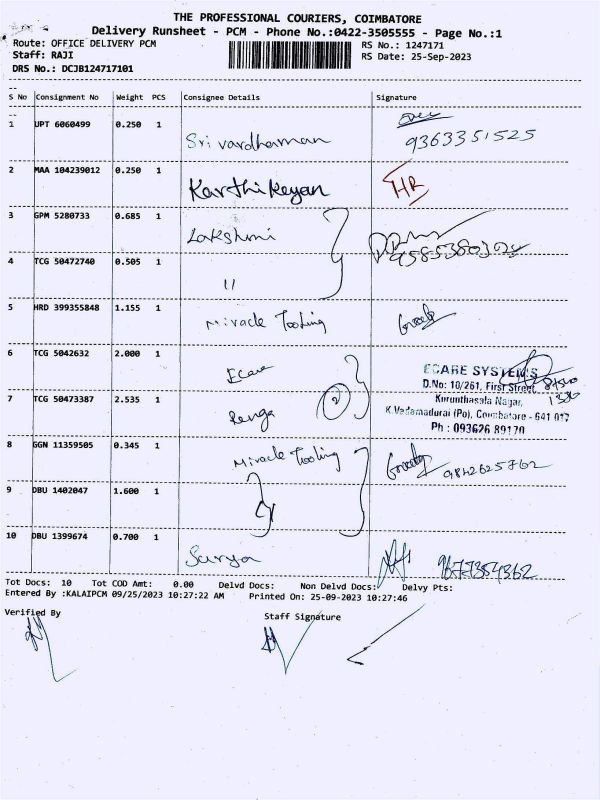 THE PROFESSIONAL COURIERS, COIMBATORE
Delivery Runsheet - PCM - Phone No.:0422-3505555 - Page No.:1
Route: OFFICE DELIVERY PCM RS No.: 1247171
Staff: RAJI RS Date: 25-Sep-2023
DRS No.: DCJB124717101
S No Consignment No Weight PCS Consignee Details Signature
1 UPT 6060499 0.250 1 Sri vardhaman 9363351525
2 MAA 104239012 0.250 1 Karthikeyan HR
3 GPM 5280733 0.685 1 Lakshmi
4 TCG 50472740 0.505 1 11
5 HRD 399355848 1.155 1 Miracle Tooling
6 TCG 5042632 2.000 1 Ecare ECARE SYSTEMS
D.No: 10/261, First Street,
7 TCG 50473387 2.535 1 Renga 2 Kurunthasala Nagar,
K.Vadamadurai (Po), Coimbatore - 641 017
Ph : 093626 89170
8 GGN 11359505 0.345 1 Miracle Tooling 9842625762
9 DBU 1402047 1.600 1
10 DBU 1399674 0.700 1 Surya 9677354362
Tot Docs: 10 Tot COD Amt: 0.00 Delvd Docs: Non Delvd Docs: Delvy Pts:
Entered By :KALAIPCM 09/25/2023 10:27:22 AM Printed On: 25-09-2023 10:27:46
Verified By Staff Signature